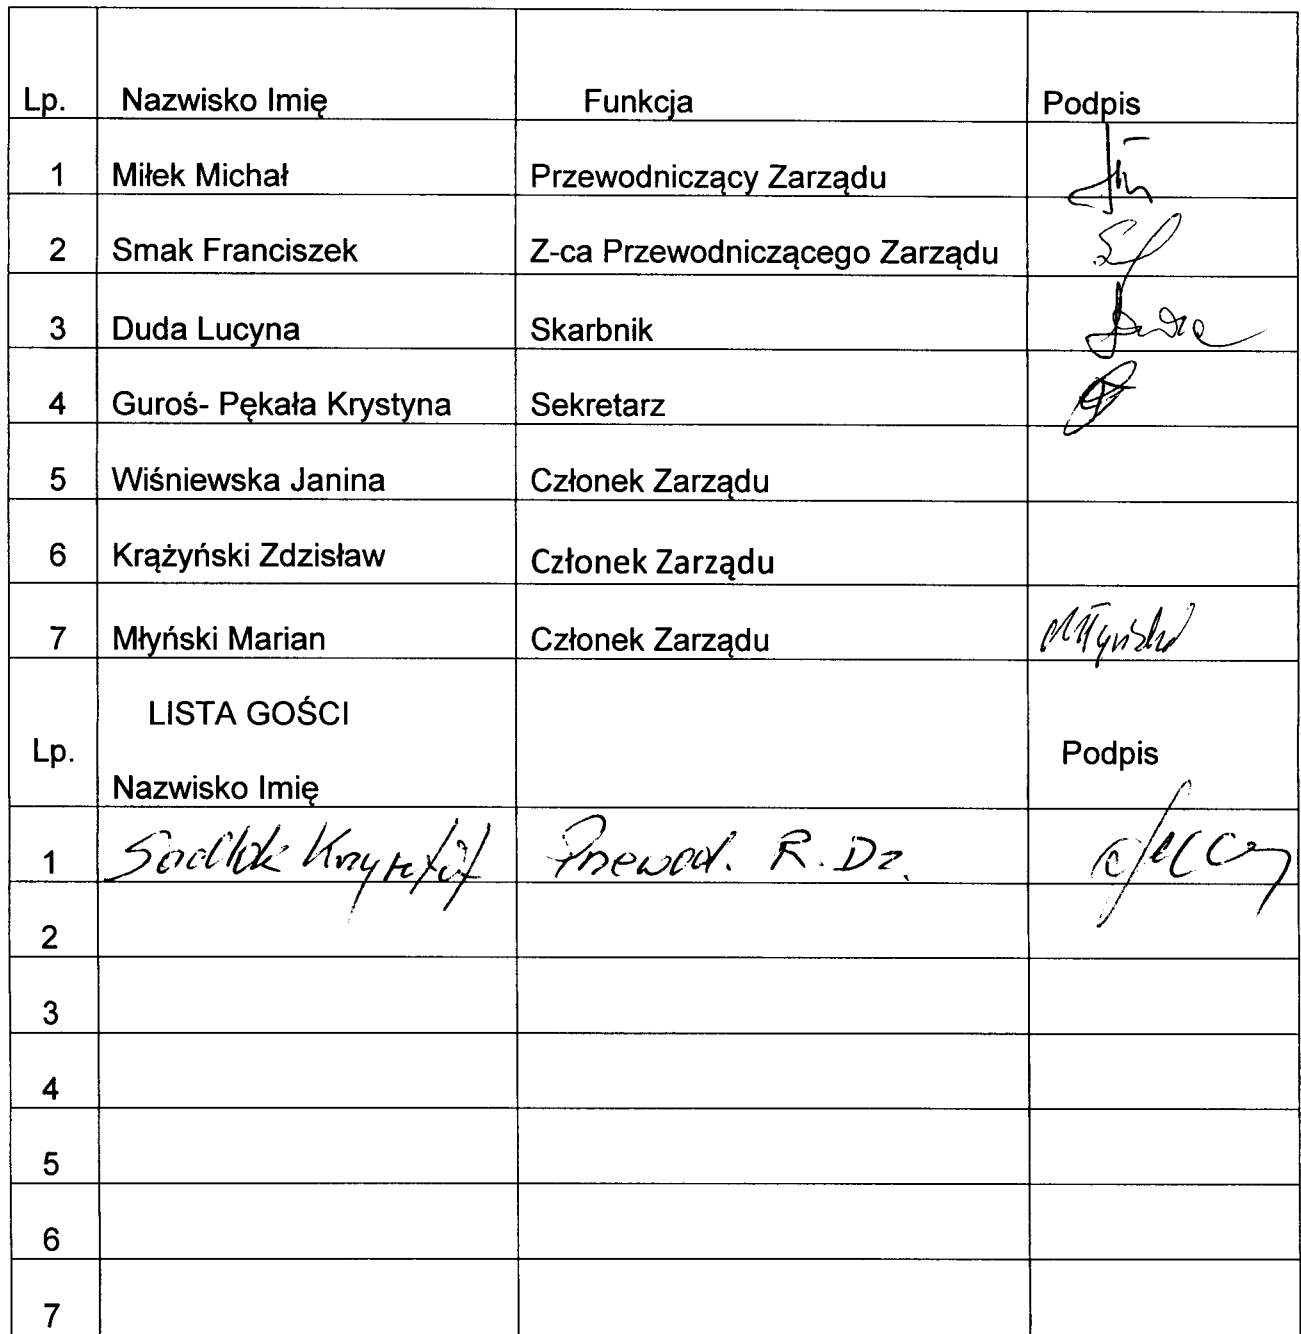 Lp. Nazwisko Imię Funkcja Podpis
1 Miłek Michał Przewodniczący Zarządu
2 Smak Franciszek Z-ca Przewodniczącego Zarządu
3 Duda Lucyna Skarbnik Duda
4 Guroś- Pękała Krystyna Sekretarz
5 Wiśniewska Janina Członek Zarządu
6 Krążyński Zdzisław Członek Zarządu
7 Młyński Marian Członek Zarządu MMłyński
LISTA GOŚCI
Lp. Podpis
Nazwisko Imię
1 Sadlok Krzysztof Przewod. R. Dz.
2
3
4
5
6
7